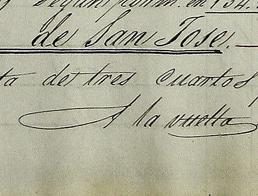 según
en 134
de San Jose.
ta de tres cuartos,
A la vuelta